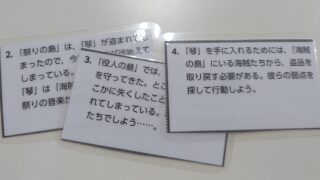 2.「祭りの島」は、「琴」が盗まれて
まったので、今
しまっている。
「琴」は『海賊
祭りの音楽が
3.「役人の島」では、
を守ってきた。とこ
こかに失くしたこと
れてしまっている。
たちでしょう……。
4.「琴」を手に入れるためには、『海賊
の島』にいる海賊たちから、盗品を
取り戻す必要がある。彼らの弱点を
探して行動しよう。